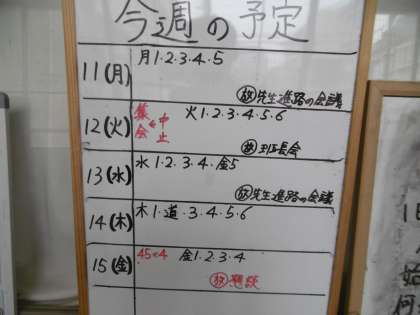 今週の予定
11(月) 月1・2・3・4・5
放先生進路の会議
12(火) 集会←中止 火1・2・3・4・5・6
放班長会
13(水) 水1・2・3・4・金5
放先生進路の会議
14(木) 木1・道・3・4・5・6
15(金) 45×4 金1・2・3・4
放懇談